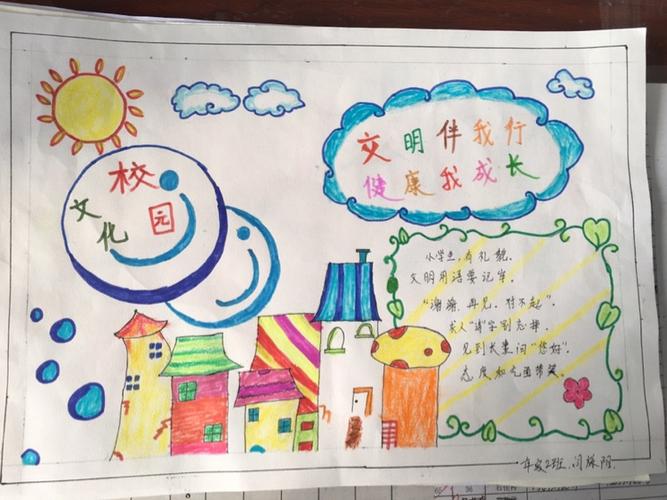 校园
文化
文明伴我行
健康我成长
小学生,有礼貌。
文明用语要记牢。
“谢谢、再见、对不起”。
求人“请”字别忘掉。
见到长辈问“您好”。
态度和气面带笑。
年级2班